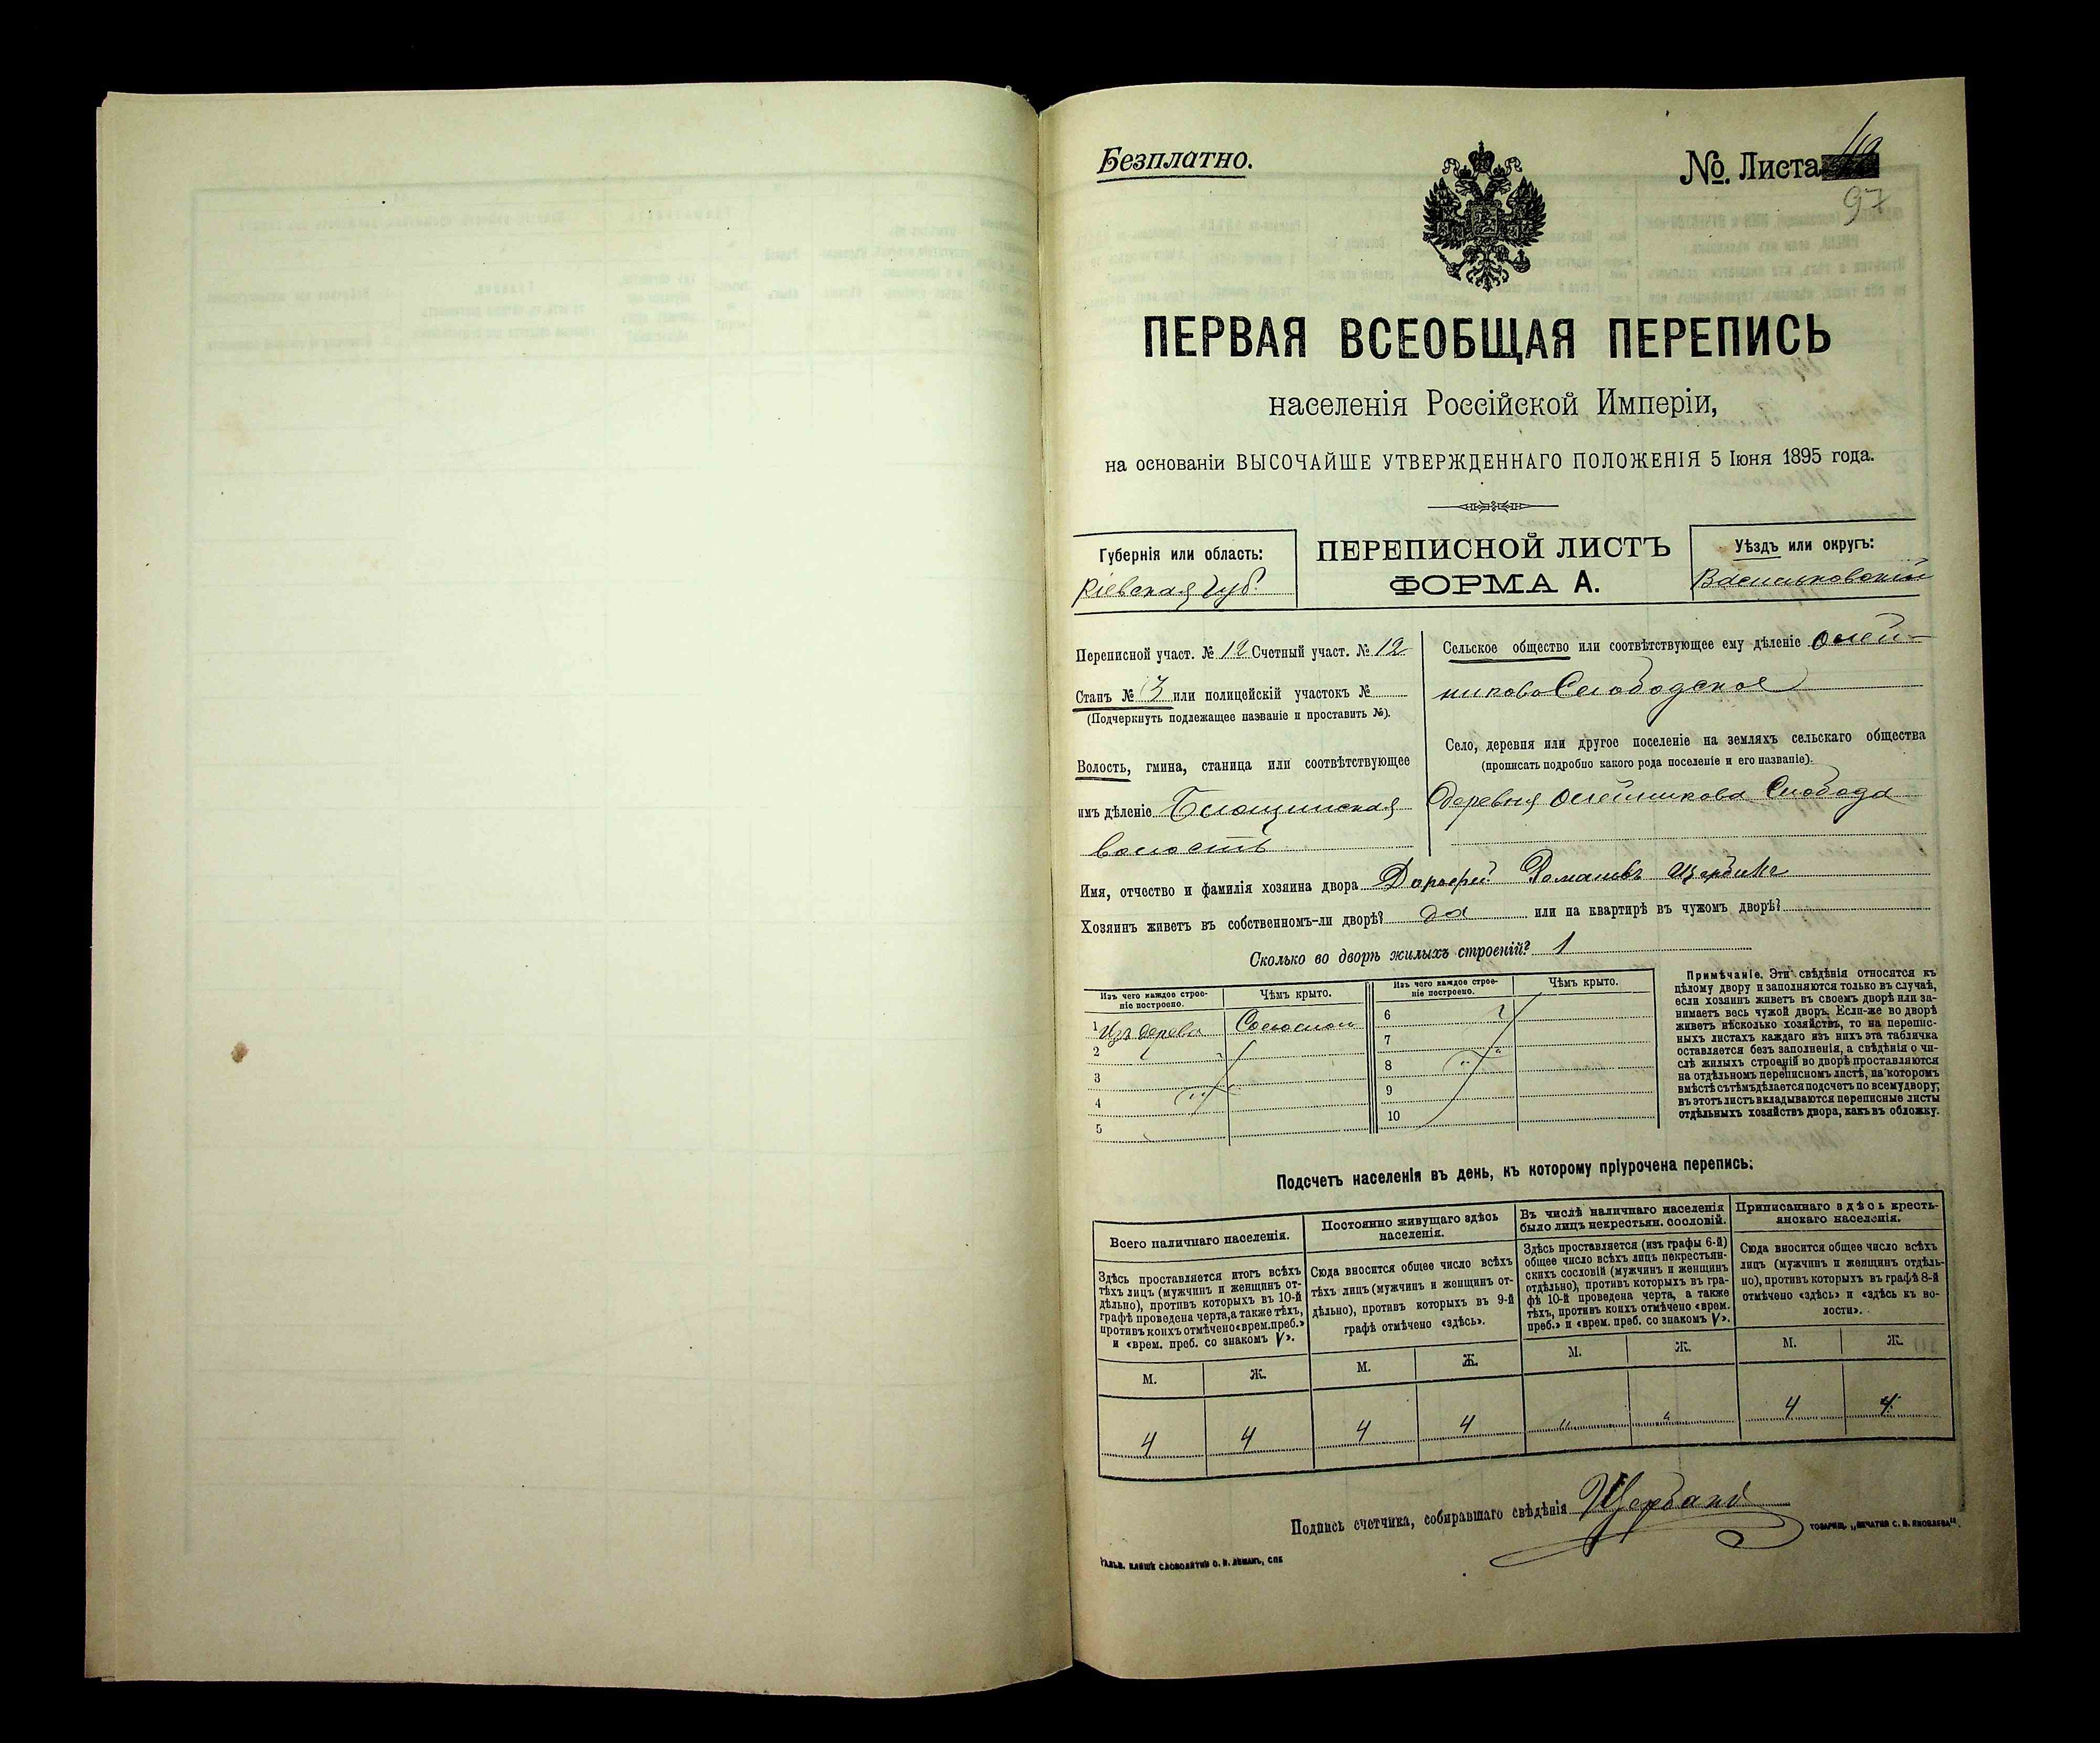 Безплатно.
№ Листа
97
ПЕРВАЯ ВСЕОБЩАЯ ПЕРЕПИСЬ
населенія Россійской Имперіи,
на основаніи ВЫСОЧАЙШЕ УТВЕРЖДЕННАГО ПОЛОЖЕНІЯ 5 Іюня 1895 года.
Губернія или область:
Кіевская губ.
ПЕРЕПИСНОЙ ЛИСТЪ
ФОРМА А.
Уѣздъ или округъ:
Васильковскій
Переписной участ. № 12 Счетный участ. № 12
Станъ № 3 или полицейскій участокъ №
(Подчеркнуть подлежащее названіе и проставить №).
Волость, гмина, станица или соотвѣтствующее
имъ дѣленіе
волость
Сельское общество или соотвѣтствующее ему дѣленіе Олей-
никово Слободское
Село, деревня или другое поселеніе на земляхъ сельскаго общества
(прописать подробно какого рода поселеніе и его названіе).
Деревня Олейникова Слобода
Имя, отчество и фамилія хозяина двора Дорофей Романовъ
Хозяинъ живетъ въ собственномъ-ли дворѣ? да или на квартирѣ въ чужомъ дворѣ?
Сколько во дворѣ жилыхъ строеній? 1
Изъ чего каждое строе-
ніе построено.
Чѣмъ крыто.
Изъ чего каждое строе-
ніе построено.
Чѣмъ крыто.
1 Изъ дерева Соломой
2
3
4
5
6
7
8
9
10
Примѣчаніе. Эти свѣдѣнія относятся къ
цѣлому двору и заполняются только въ случаѣ,
если хозяинъ живетъ въ своемъ дворѣ или за-
нимаетъ весь чужой дворъ. Если-же во дворѣ
живетъ нѣсколько хозяйствъ, то на перепис-
ныхъ листахъ каждаго изъ нихъ эта табличка
оставляется безъ заполненія, а свѣдѣнія о чи-
слѣ жилыхъ строеній во дворѣ проставляются
на отдѣльномъ переписномъ листѣ, на которомъ
вмѣстѣ съ тѣмъ дѣлается подсчетъ по всему двору;
въ этотъ листъ вкладываются переписные листы
отдѣльныхъ хозяйствъ двора, какъ въ обложку.
Подсчетъ населенія въ день, къ которому пріурочена перепись:
Всего наличнаго населенія.
Постоянно живущаго здѣсь
населенія.
Въ числѣ наличнаго населенія
было лицъ некрестьян. сословій.
Приписаннаго здѣсь кресть-
янскаго населенія.
Здѣсь проставляется итогъ всѣхъ
тѣхъ лицъ (мужчинъ и женщинъ от-
дѣльно), противъ которыхъ въ 10-й
графѣ проведена черта, а также тѣхъ,
противъ коихъ отмѣчено «врем. преб.»
и «врем. преб. со знакомъ V».
Сюда вносится общее число всѣхъ
тѣхъ лицъ (мужчинъ и женщинъ от-
дѣльно), противъ которыхъ въ 9-й
графѣ отмѣчено «здѣсь».
Здѣсь проставляется (изъ графы 6-й)
общее число всѣхъ лицъ некрестьян-
скихъ сословій (мужчинъ и женщинъ
отдѣльно), противъ которыхъ въ гра-
фѣ 10-й проведена черта, а также
тѣхъ, противъ коихъ отмѣчено «врем.
преб.» и «врем. преб. со знакомъ V».
Сюда вносится общее число всѣхъ
лицъ (мужчинъ и женщинъ отдѣль-
но), противъ которыхъ въ графѣ 8-й
отмѣчено «здѣсь» и «здѣсь къ во-
лости».
М. Ж. М. Ж. М. Ж. М. Ж.
4 4 4 4 " " 4 4
Подпись счетчика, собиравшаго свѣдѣнія Щербакъ
ТОВАРИЩ. „ПЕЧАТНЯ С. П. ЯКОВЛЕВА".
ГАЛЬВ. КЛИШЕ СЛОВОЛИТНИ О. И. ЛЕМАНЪ, СПБ